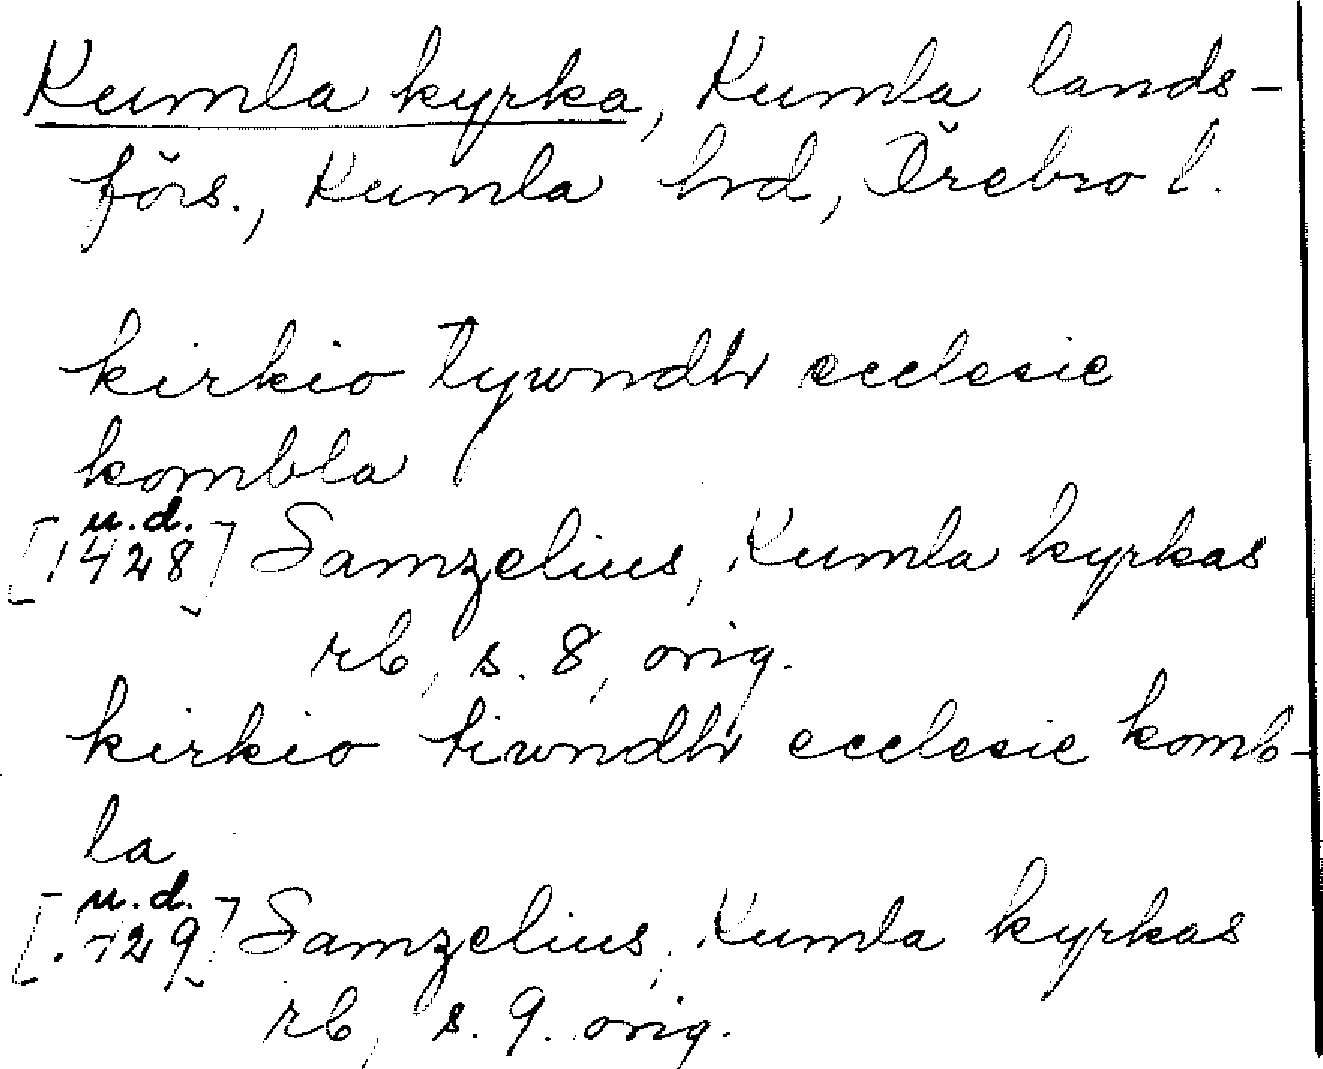 Kumla kyrka, Kumla lands-
förs., Kumla hrd, Örebro l.
kirkio tywndhr ecclesie
kombla
[u.d. 1428] Samzelius, Kumla kyrkas
rb, s. 8, orig.
kirkio tiwndhr ecclesie komb-
la
[u.d. 1429] Samzelius, Kumla kyrkas
rb, s. 9. orig.